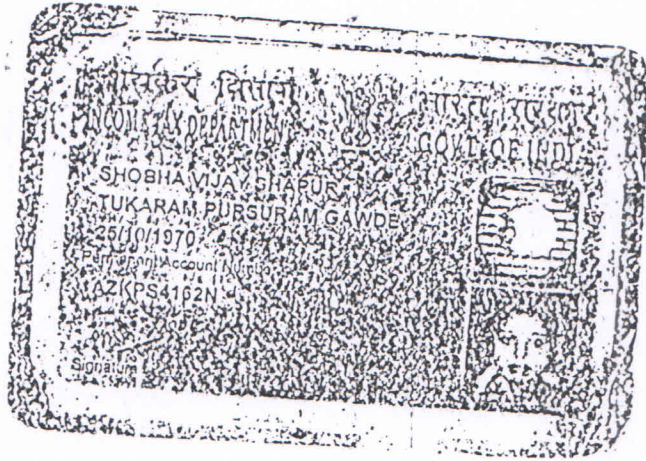 आयकर विभाग भारत सरकार
INCOME TAX DEPARTMENT GOVT. OF INDIA
SHOBHA VIJAY SHAPUR
TUKARAM PURSURAM GAWDE
25/10/1970
Permanent Account Number
AZKPS4162N
Signature